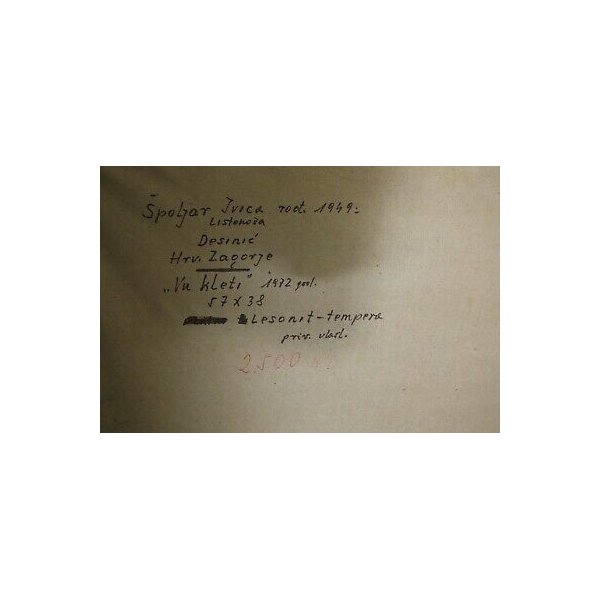 Špoljar Ivica rođ. 1949:
Listonoša
Desinić
Hrv. Zagorje
„Vu kleti" 1972 god.
57 x 38
Lesonit-tempera
priv. vlast.
2.500